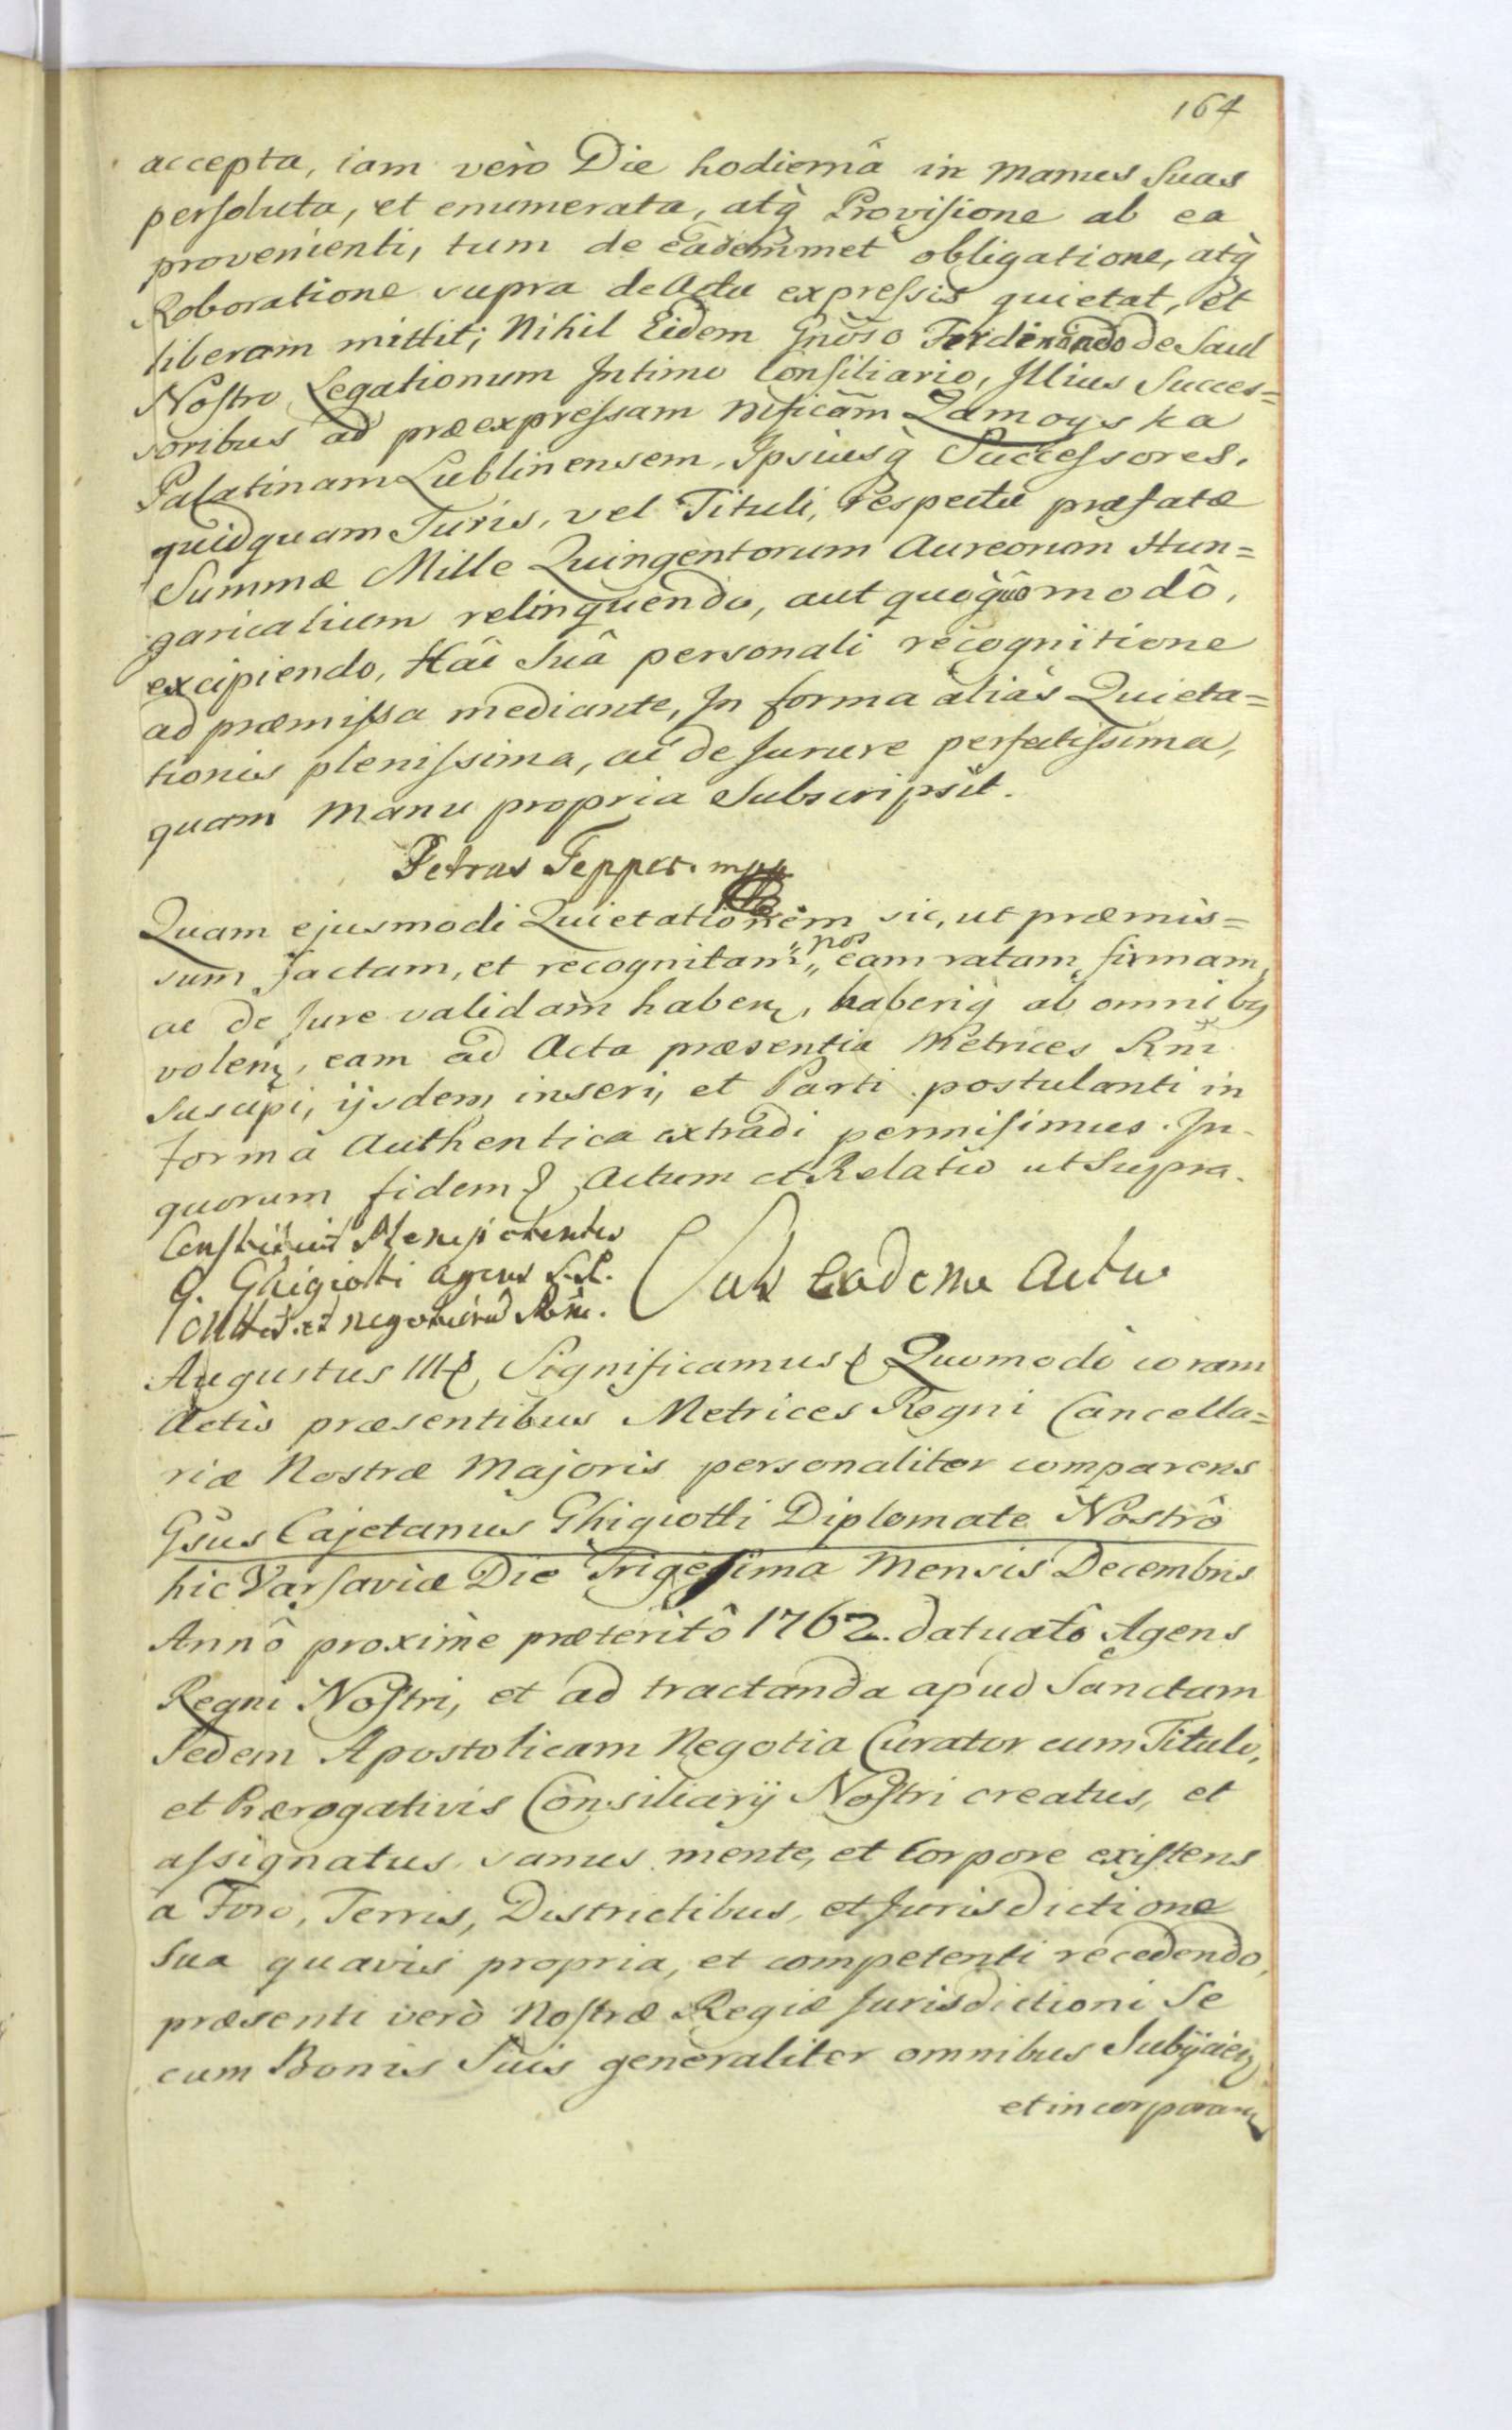 164
accepta, iam verò Die hodiernâ in manus Suas
persoluta, et enumerata, atq̀ Provisione ab ea
provenienti, tum de eâdemmet obligatione, atq̀
Roboratione supra de Actu expressis quietat, et
liberam mittit; Nihil Eidem Gnoso Ferdinando de Saul
Nostro Legationum Intimo Consiliario, Illius Succes=
soribus ad præexpressam Mficam Zamoyska
Palatinam Lublinensem, Ipsiusq̀ Successores,
quidquam Juris, vel Tituli, respectu præfatæ
Summæ Mille Quingentorum Aureorum Hun=
garicalium relinquendo, aut quoq̀uômodô,
excipiendo, Hâc Suâ personali recognitione
ad præmissa mediante, In forma aliàs Quieta=
tionis plenissima, ac de Jurure perfectissima,
quam Manu propria Subscripsit.
Petrus Tepper. mpp
Quam ejusmodi Quietationem sic, ut præmis=
sum factam, et recognitam „nos„ eam ratam, firmam,
ac de Jure validam haberę, haberiq̀ ab omnibg
volenę, eam ad Acta præsentia Metrices Rni
Suscipi, ijsdem inseri, et Parti postulanti in
forma Authentica extradi permisimus. In
quorum fidem & Actum et Relatio ut Supra.
Constituit Plenipotentes
G. Ghigiotti agens S.R.
Mttis et negotiorũ Rom.
Sub Eodem Actu
Augustus III& Significamus & Quomodo coram
Actis præsentibus Metrices Regni Cancella=
riæ Nostræ Majoris personaliter comparens
Gsus Cajetanus Ghigiotti Diplomate Nostrô
hic Varsaviæ Die Trigesima Mensis Decembris
Annô proximè præteritô 1762. datuatô Agens
Regni Nostri, et ad tractanda apud Sanctam
Sedem Apostolicam Negotia Curator cum Titulo,
et Prærogativis Consiliarij Nostri creatus, et
assignatus, sanus mente, et Corpore existens
a Foro, Terris, Districtibus, et Jurisdictione
Sua quavis propria, et competenti recedendo,
præsenti verò Nostræ Regiæ Jurisdictioni Se
cum Bonis Suis generaliter omnibus Subijcieņ
et incorporanę